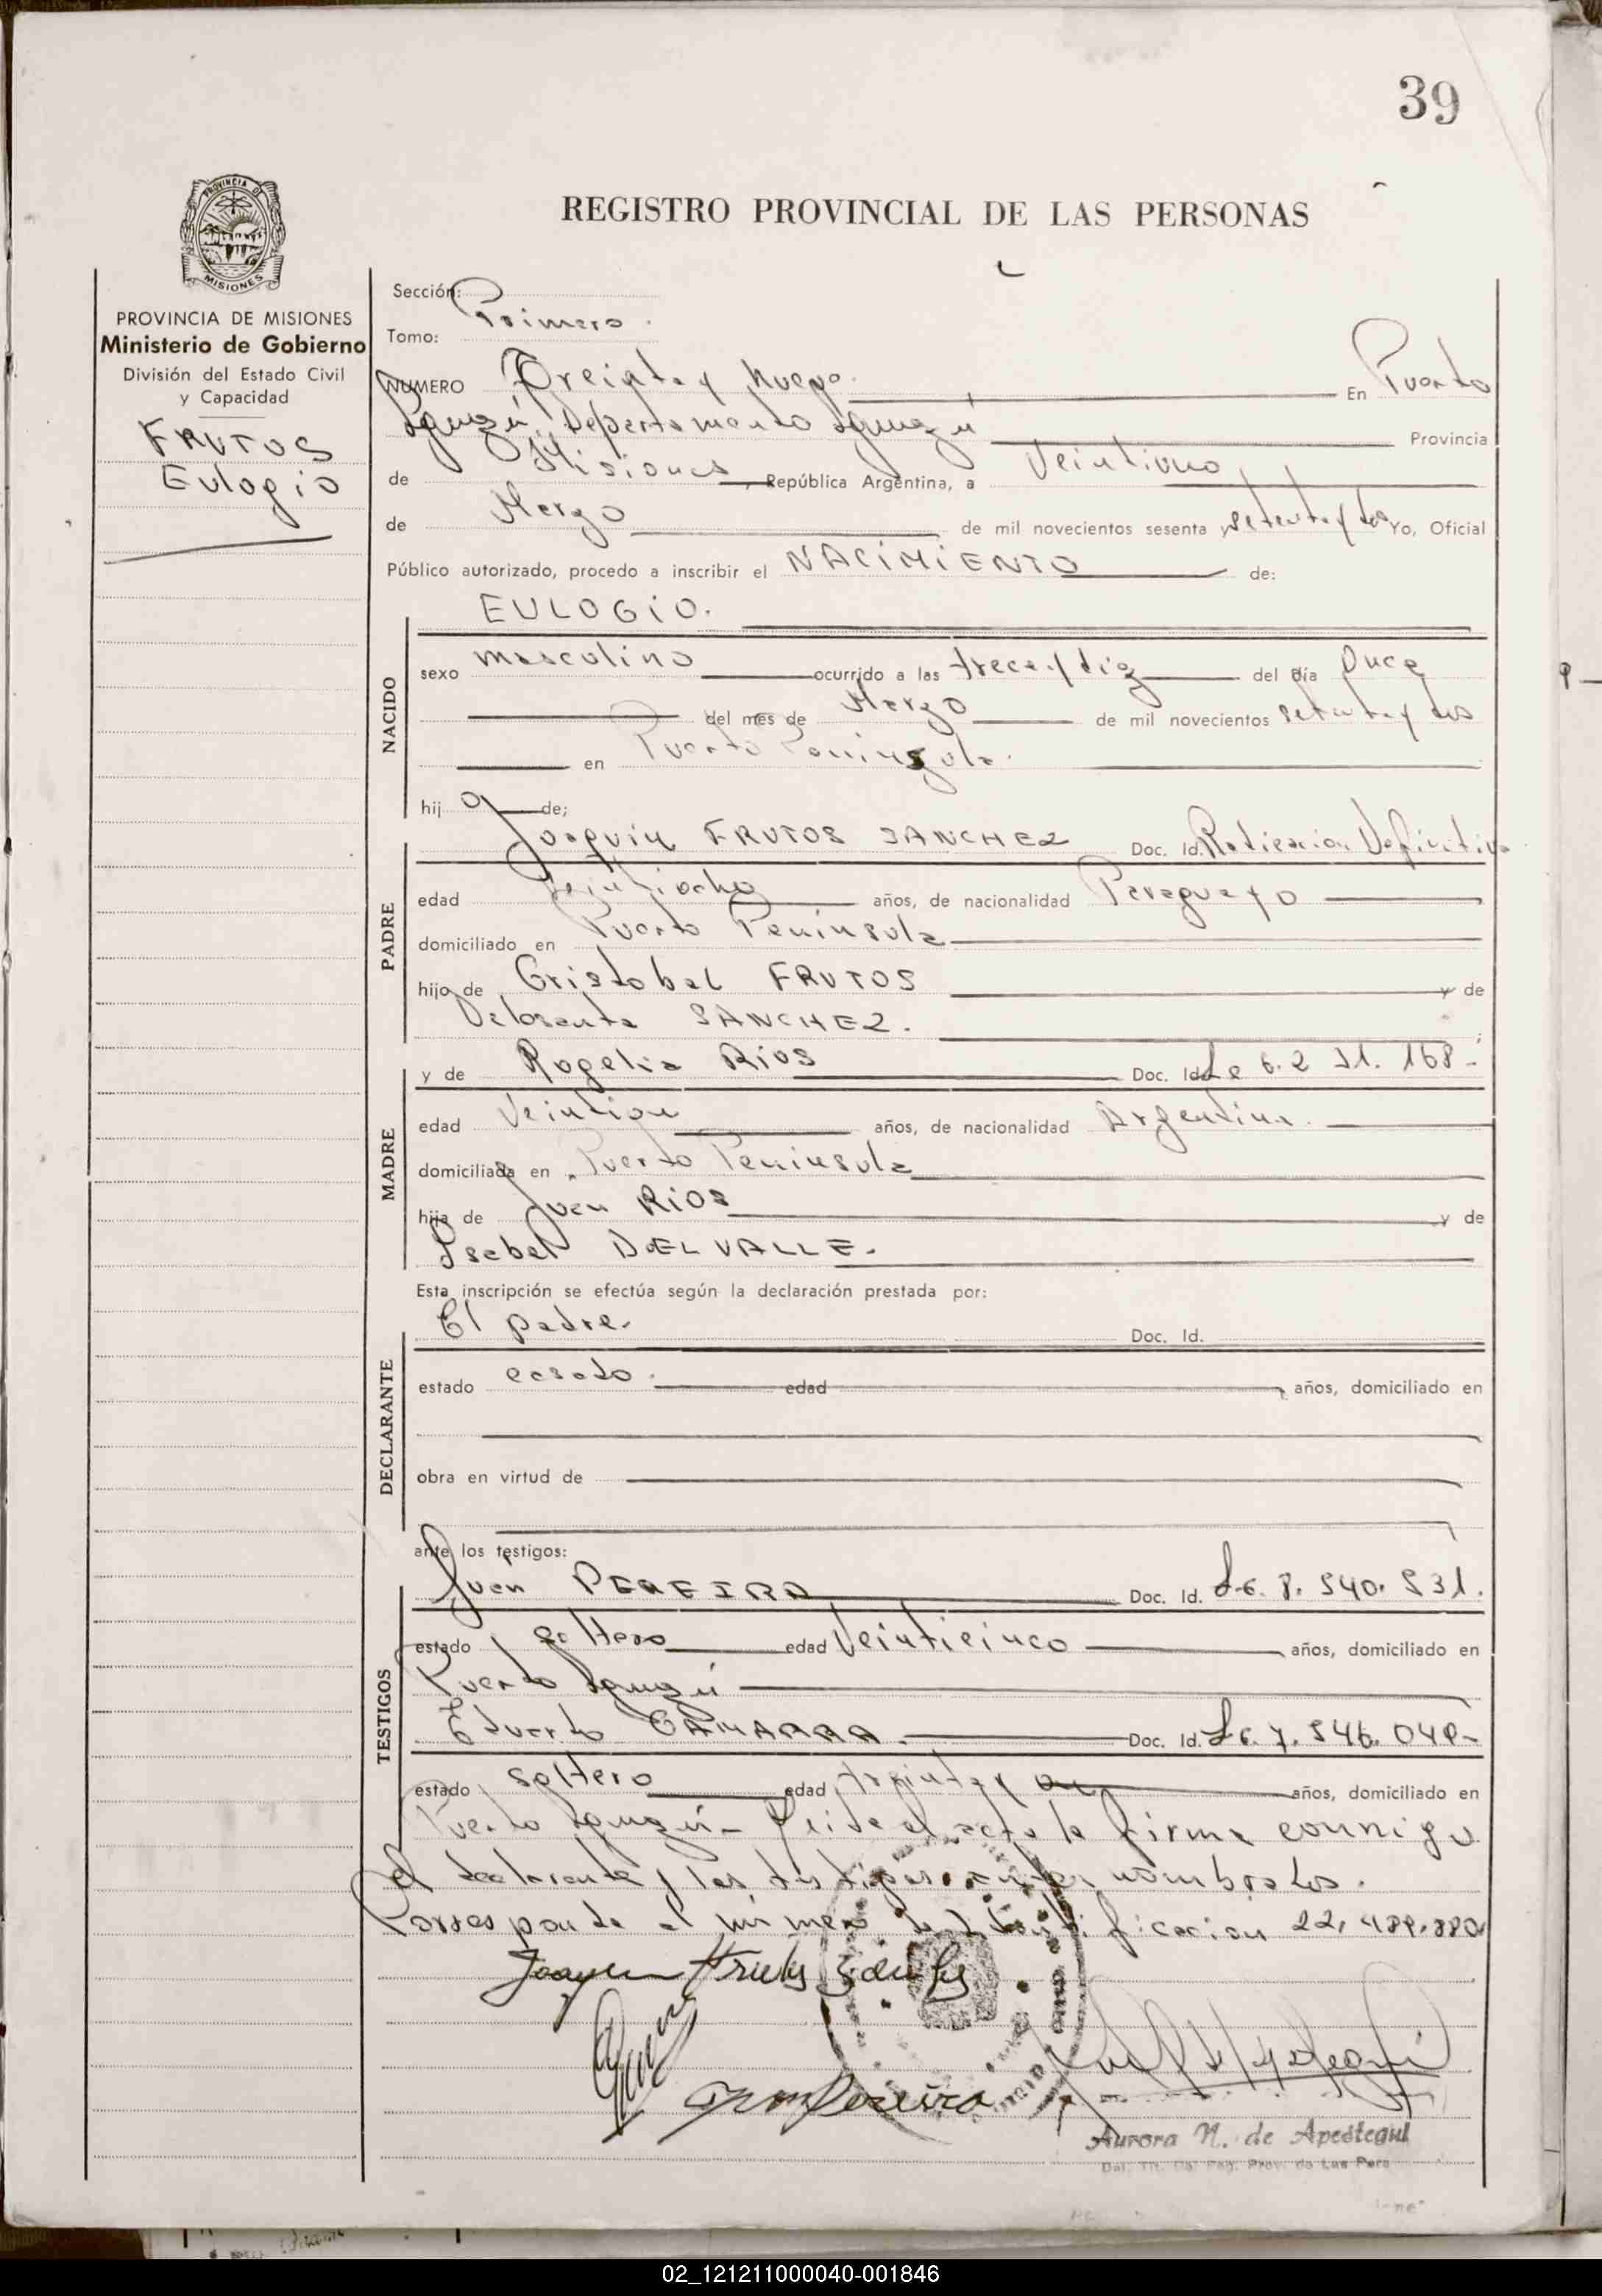 39
PROVINCIA DE
MISIONES
REGISTRO PROVINCIAL DE LAS PERSONAS
PROVINCIA DE MISIONES
Ministerio de Gobierno
División del Estado Civil
y Capacidad
FRUTOS
Eulogio
Sección:
Primero.
Tomo:
NUMERO Treinta y Nueve. En Puerto
Iguazú, Departamento Iguazú Provincia
de Misiones, República Argentina, a Veintiuno
de Marzo de mil novecientos sesenta y setenta y dos Yo, Oficial
Público autorizado, procedo a inscribir el NACIMIENTO de:
EULOGIO.
NACIDO
sexo masculino ocurrido a las trece y diez del día Once
del mes de Marzo de mil novecientos setenta y dos
en Puerto Península.
hijo de;
PADRE
Joaquín FRUTOS SANCHEZ Doc. Id. Radicación Definitiva
edad Veintiocho años, de nacionalidad Paraguayo
domiciliado en Puerto Península
hijo de Cristobal FRUTOS y de
SANCHEZ.
MADRE
y de Rogelia Ríos Doc. Id.
edad Veintiun años, de nacionalidad Argentina.
domiciliada en Puerto Península
hija de Juan RIOS y de
Isabel DELVALLE.
Esta inscripción se efectúa según la declaración prestada por:
DECLARANTE
El padre. Doc. Id.
estado casado. edad años, domiciliado en
obra en virtud de
ante los testigos:
TESTIGOS
Juan PEREIRA Doc. Id.
estado soltero edad Veinticinco años, domiciliado en
Puerto Iguazú
Eduardo GAMARRA. Doc. Id.
estado soltero edad treinta y años, domiciliado en
Puerto Iguazú - Leida el acta la firma conmigo
el declarante y los testigos antes nombrados.
Corresponde al número de Identificación
Joaquin Frutos Sanches
Juan Pereira
Aurora N. de Apestegui
02_121211000040-001846